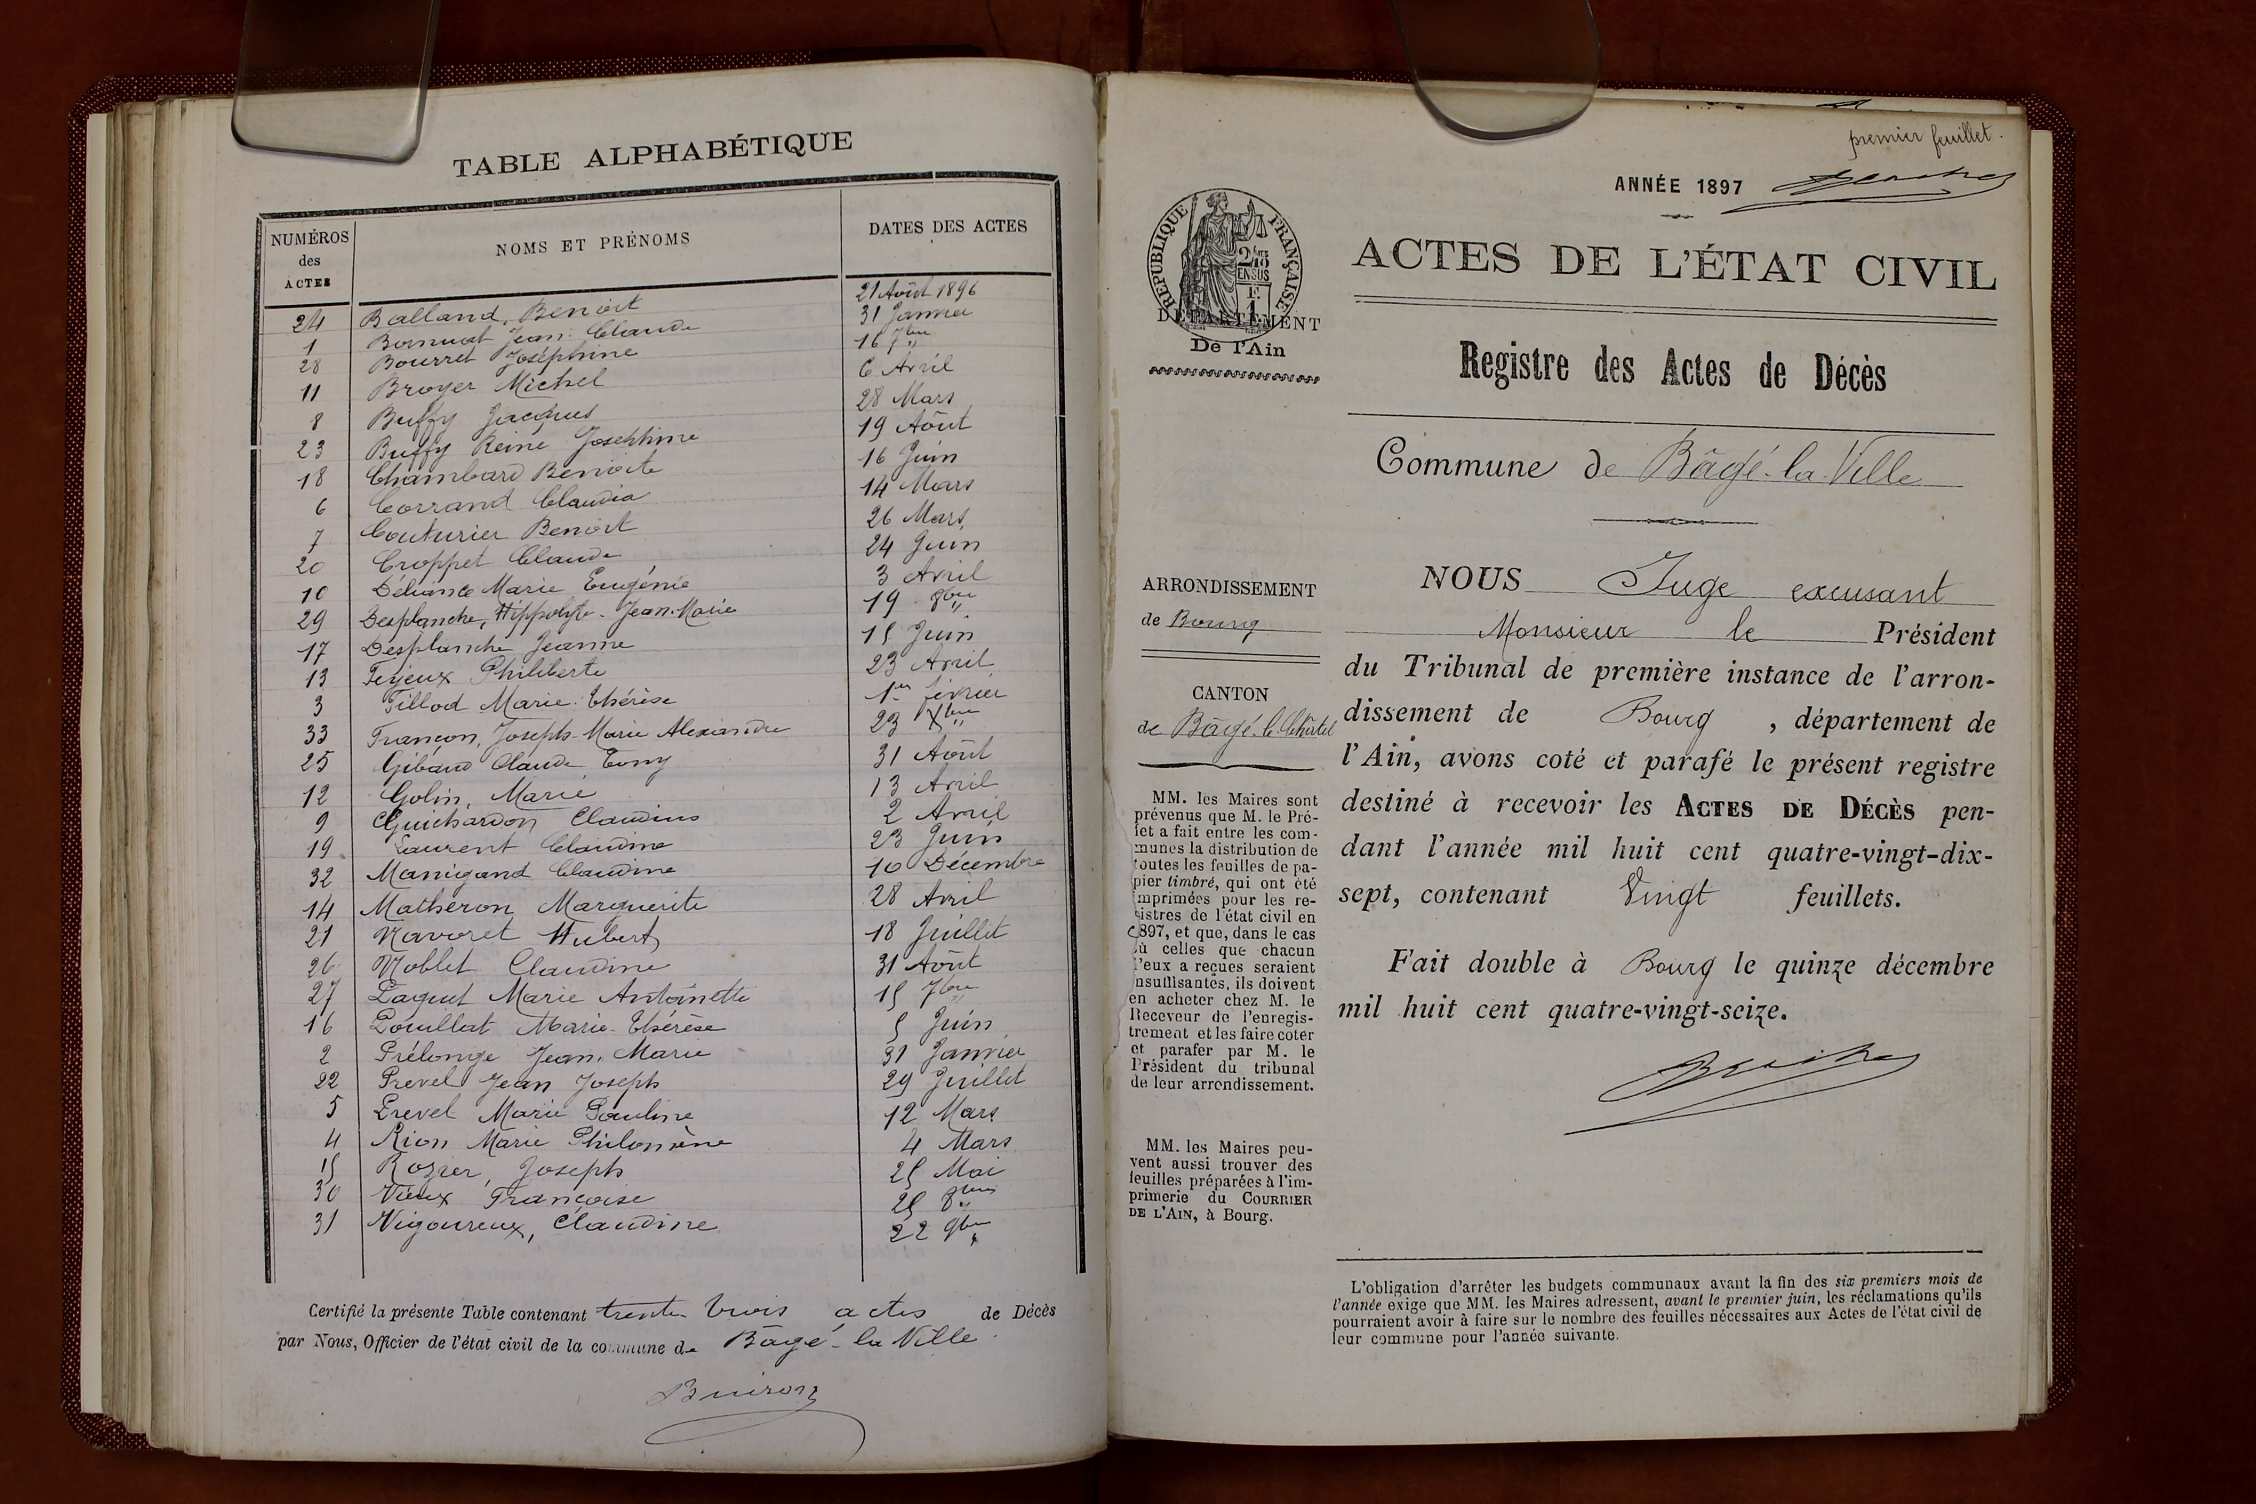 TABLE ALPHABÉTIQUE
NUMÉROS des ACTES NOMS ET PRÉNOMS DATES DES ACTES
24 Balland, Benoit 21 Août 1896
1 Jean Claude 31 Janvier
28 Bourret Joséphine 16 7bre
11 Broyer Michel 6 Avril
8 Buffy Jacques 28 Mars
23 Buffy Reine Josephine 19 Août
18 Chambard Benoite 16 Juin
6 Corrand Claudia 14 Mars
7 Couturier Benoit 26 Mars
20 Croppet Claude 24 Juin
10 Déliance Marie Eugénie 3 Avril
29 Desplanche, Hippolyte Jean-Marie 19 8bre
17 Desplanche Jeanne 15 Juin
13 Feyeux Philiberte 23 Avril
3 Fillod Marie Thérèse 1er février
33 Françon, Joseph Marie Alexandre 23 Xbre
25 Gibaud Claude Tony 31 Août
12 Golin, Marie 13 Avril
9 Guichardon Claudius 2 Avril
19 Laurent Claudine 23 Juin
32 Manigand Claudine 10 Décembre
14 Matheron Marguerite 28 Avril
21 Navoret Hubert 18 Juillet
26 Noblet Claudine 31 Août
27 Paquet Marie Antoinette 15 7bre
16 Pouillat Marie-Thérèse 5 Juin
2 Prélonge Jean-Marie 31 Janvier
22 Prevel Jean Joseph 29 Juillet
5 Prevel Marie Pauline 12 Mars
4 Rion Marie Philomène 4 Mars
15 Rozier, Joseph 25 Mai
30 Vieux Françoise 25 8bre
31 Vigoureux, Claudine 22 9bre
Certifié la présente Table contenant trente trois actes de Décès
par Nous, Officier de l'état civil de la commune de Bâgé-la Ville
Buiron
premier feuillet.
ANNÉE 1897
RÉPUBLIQUE FRANÇAISE
2/10 EN SUS
F. 1
DÉPARTEMENT
De l'Ain
ACTES DE L'ÉTAT CIVIL
Registre des Actes de Décès
Commune de Bâgé-la-Ville
ARRONDISSEMENT
de Bourg
CANTON
de Bâgé-le-Châtel
MM. les Maires sont
prévenus que M. le Pré-
fet a fait entre les com-
munes la distribution de
toutes les feuilles de pa-
pier timbré, qui ont été
imprimées pour les re-
gistres de l'état civil en
1897, et que, dans le cas
où celles que chacun
d'eux a reçues seraient
insuffisantes, ils doivent
en acheter chez M. le
Receveur de l'enregis-
trement et les faire coter
et parafer par M. le
Président du tribunal
de leur arrondissement.
MM. les Maires peu-
vent aussi trouver des
feuilles préparées à l'im-
primerie du COURRIER
DE L'AIN, à Bourg.
NOUS Juge excusant
Monsieur le Président
du Tribunal de première instance de l'arron-
dissement de Bourg, département de
l'Ain, avons coté et parafé le présent registre
destiné à recevoir les ACTES DE DÉCÈS pen-
dant l'année mil huit cent quatre-vingt-dix-
sept, contenant Vingt feuillets.
Fait double à Bourg le quinze décembre
mil huit cent quatre-vingt-seize.
L'obligation d'arrêter les budgets communaux avant la fin des six premiers mois de
l'année exige que MM. les Maires adressent, avant le premier juin, les réclamations qu'ils
pourraient avoir à faire sur le nombre des feuilles nécessaires aux Actes de l'état civil de
leur commune pour l'année suivante.